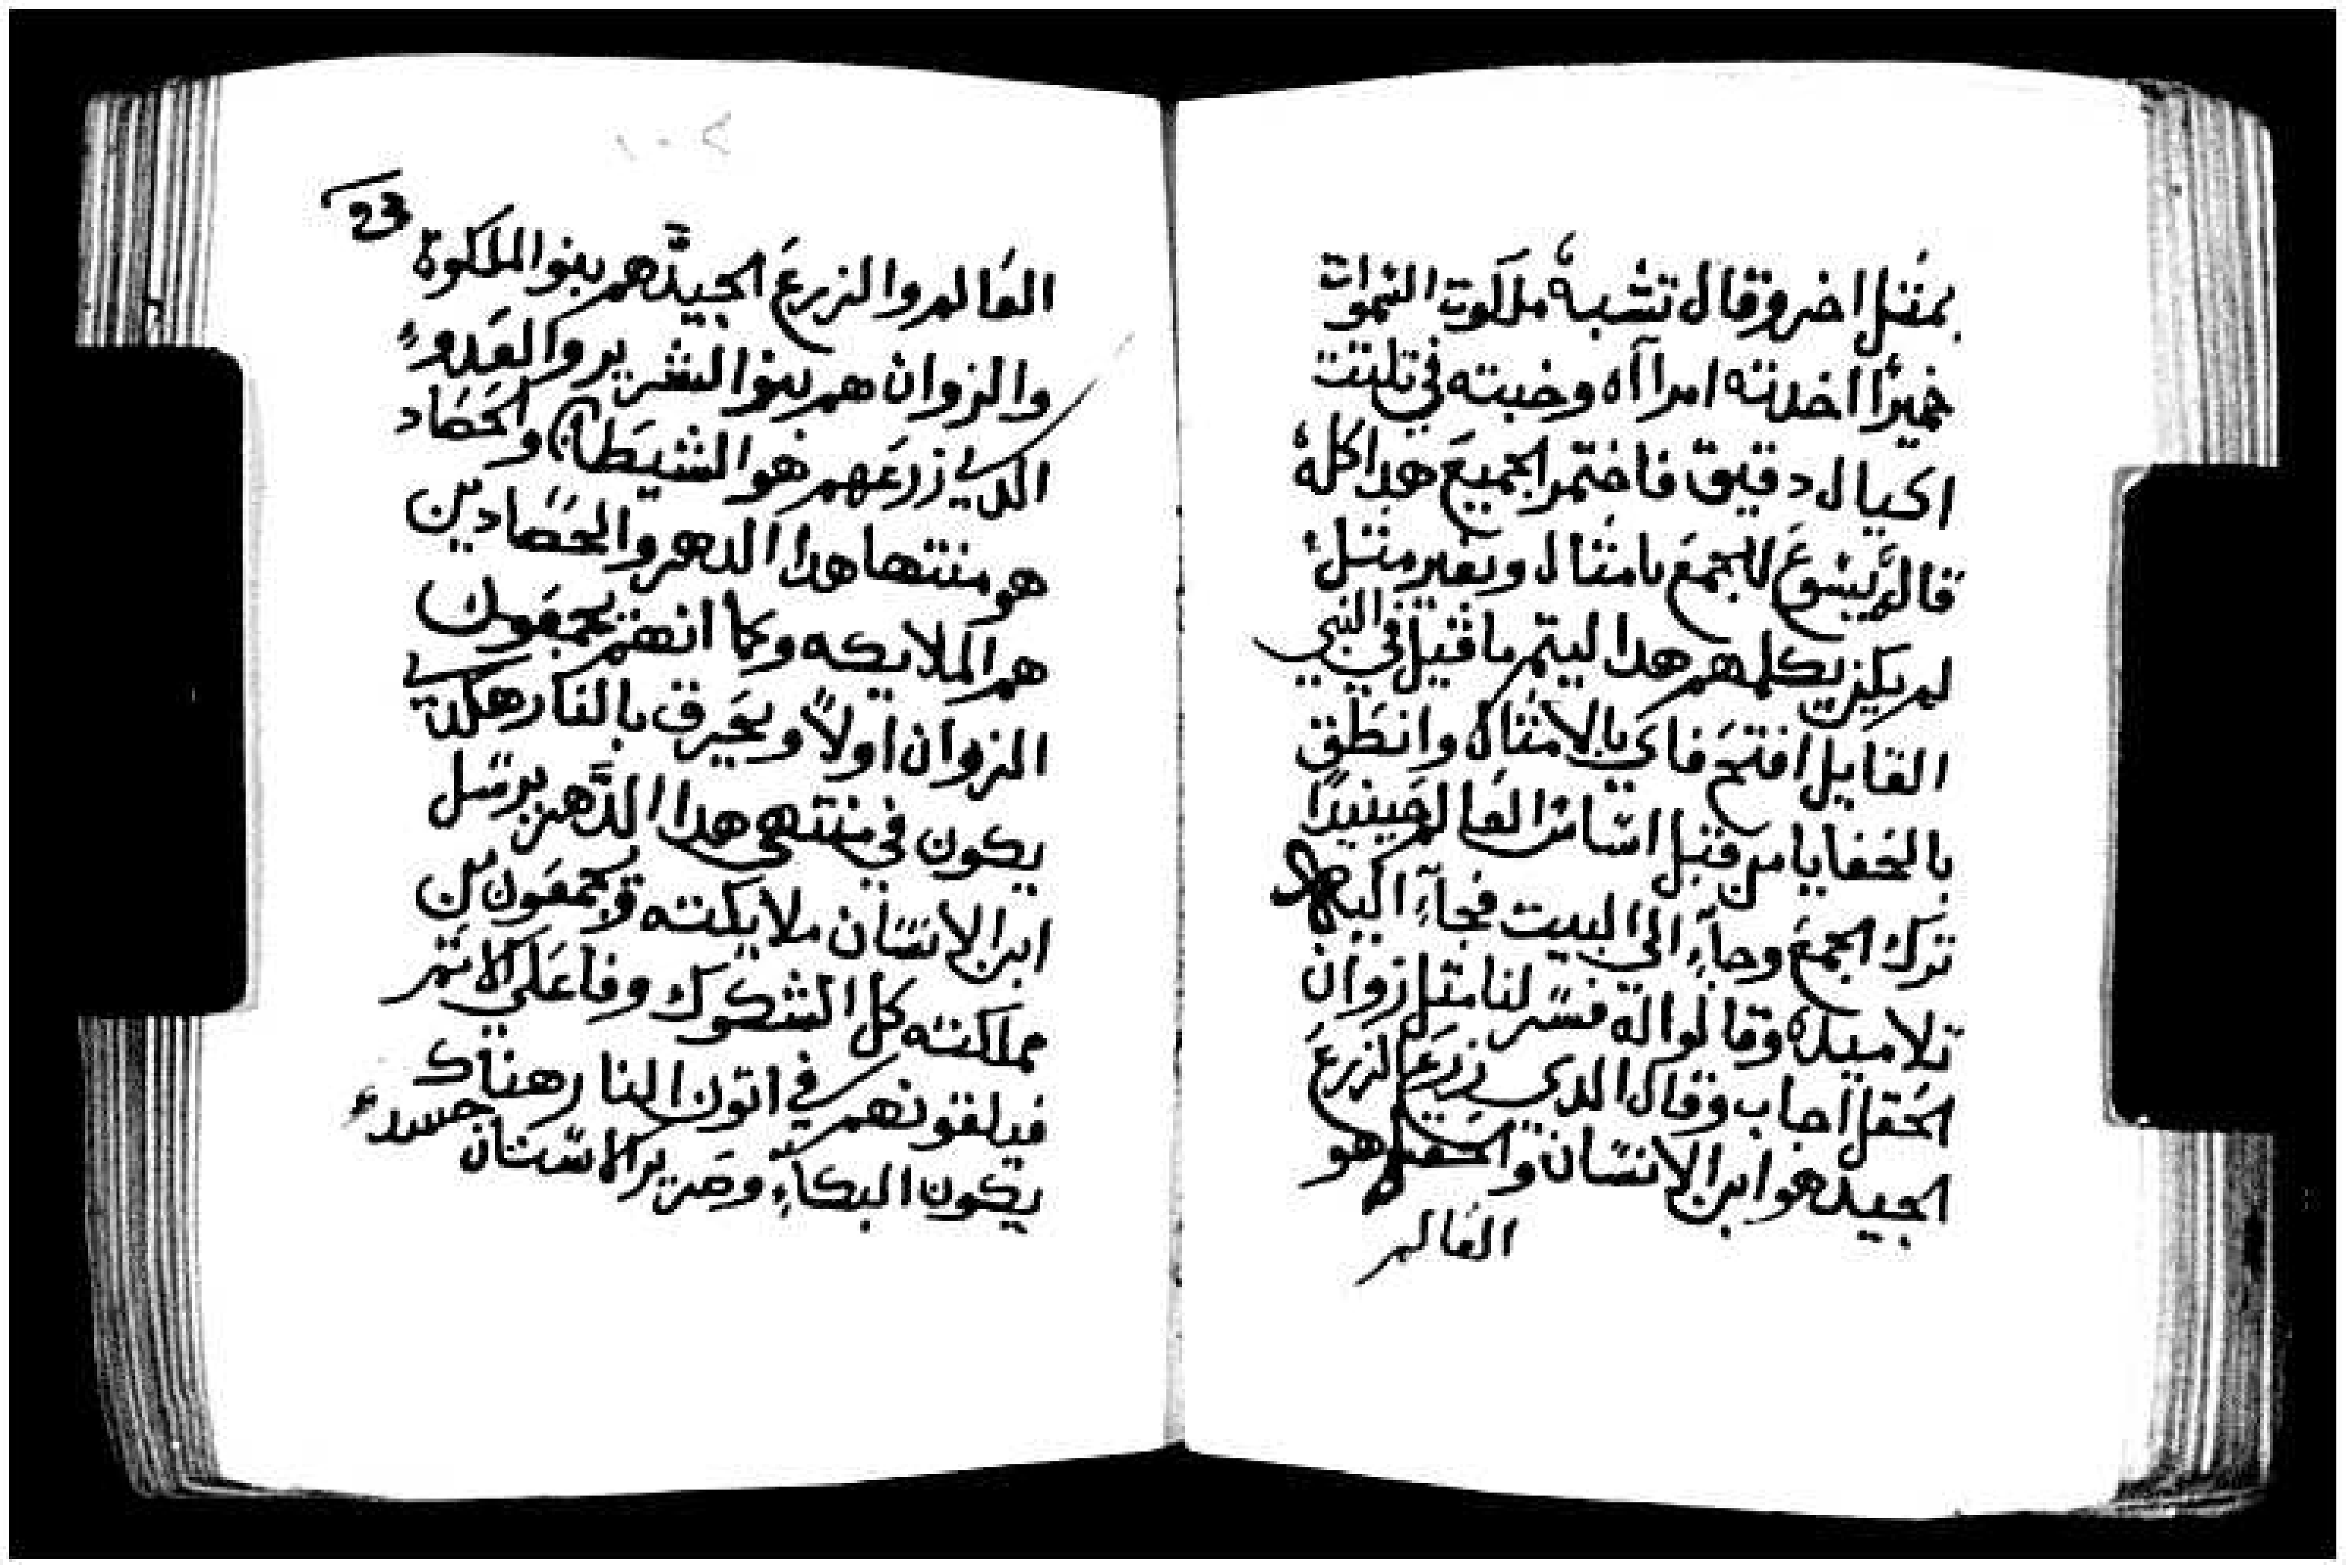 بمثل اخر وقال تشبه ملكوت السموات
خميرًا اخدته امرآاه وخبته في تلتت
اكيال دقيق فاختمر الجميع هدا كله
قاله يسوع للجمع بامثال وبغير متل
لم يكن يكلمهم هدا ليتم ما قيل في النبي
القايل افتح فاي بالامثال وانطق
بالخفايا من قبل اساس العالم حينيدًا
ترك الجمع وجآء الي البيت فجآء اليه
تلاميده وقالوا له فسر لنا متل زوان
الحقل اجاب وقال الدي زرع الزرع
الجيد هو ابن الانسان والحقل هو
العالم
١٠٢
23
العالم والزرع الجيد هم بنوا الملكوة
والزوان هم بنوا الشرير والعدوء
الدي زرعهم هو الشيطان والحصاد
هو منتها هدا الدهر والحصادين
هم الملايكه وكما انهم يجمعون
الزوان اولاً ويحرق بالنار هكدي
يكون في منتهي هدا الدهر يرسل
ابن الانسان ملايكته ويجمعون من
مملكته كل الشكوك وفاعلي الاتم
فيلقونهم في اتون النار هناك
يكون البكآء وصرير الاسنان